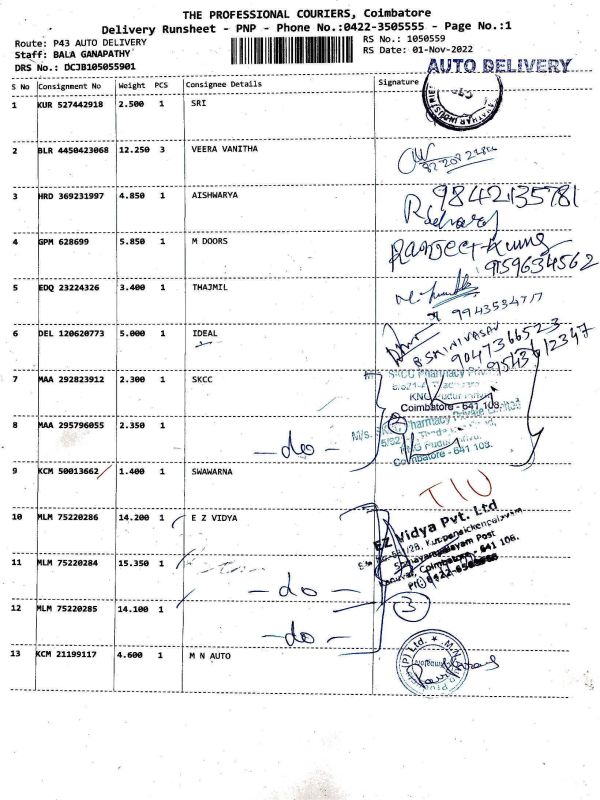 THE PROFESSIONAL COURIERS, Coimbatore
Delivery Runsheet - PNP - Phone No.:0422-3505555 - Page No.:1
Route: P43 AUTO DELIVERY
RS No.: 1050559
Staff: BALA GANAPATHY
RS Date: 01-Nov-2022
DRS No.: DCJB105055901
AUTO DELIVERY
S No Consignment No Weight PCS Consignee Details Signature
1 KUR 527442918 2.500 1 SRI
2 BLR 4450423068 12.250 3 VEERA VANITHA
3 HRD 369231997 4.850 1 AISHWARYA 9842135781
4 GPM 628699 5.850 1 M DOORS Ranjeet Kumar
9159634562
5 EDQ 23224326 3.400 1 THAJMIL
6 DEL 120620773 5.000 1 IDEAL B SRINIVASAN
9047366523
9543612347
7 MAA 292823912 2.300 1 SKCC
SKCC Pharmacy
Coimbatore - 641 108.
8 MAA 295796055 2.350 1 -do- 2
M/s. Pharmacy Private Limited
Coimbatore - 641 108.
9 KCM 50013662 1.400 1 SWAWARNA
10 MLM 75220286 14.200 1 E Z VIDYA
EZ Vidya Pvt. Ltd
Post
Coimbatore - 641 108.
11 MLM 75220284 15.350 1 -do-
3
12 MLM 75220285 14.100 1 -do-
13 KCM 21199117 4.600 1 M N AUTO